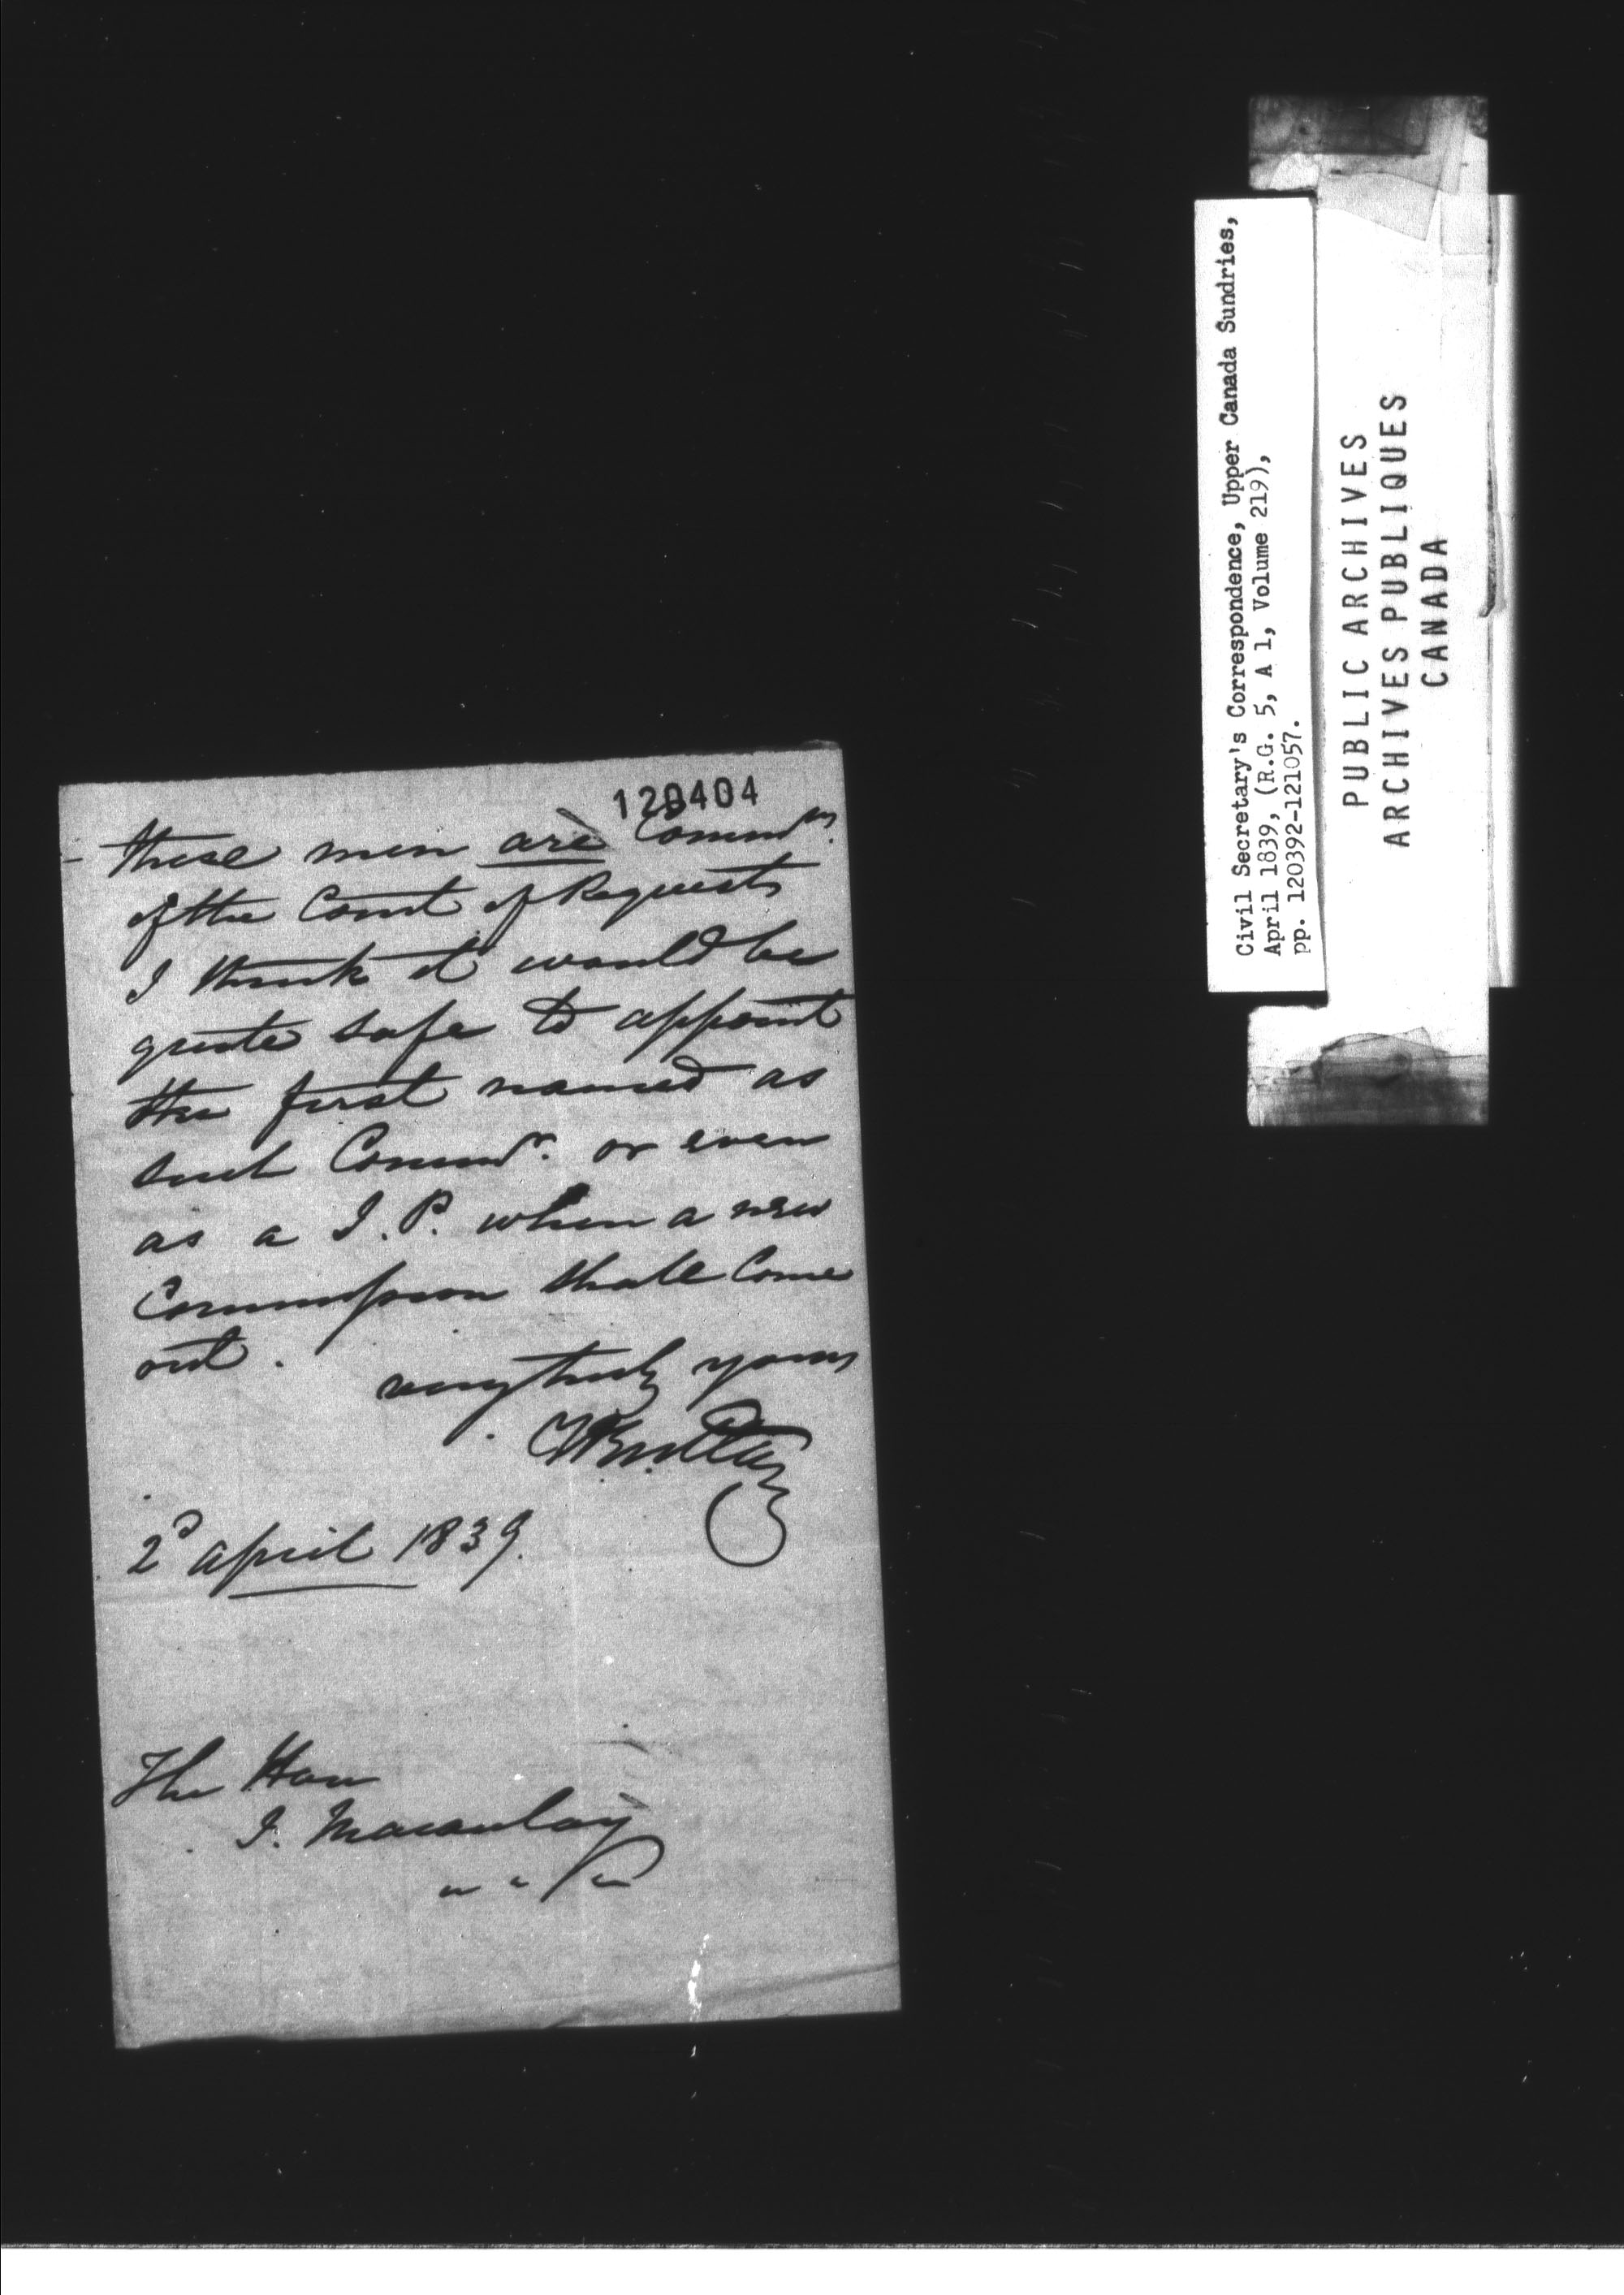 120404
these men are Commrs.
of the Court of Requests
I think it would be
quite safe to appoint
the first named as
such Commr. or even
as a J. P. when a new
Commission shall Come
out.
very truly yours
2d April 1839.
The Hon
J. Macaulay
Civil Secretary's Correspondence, Upper Canada Sundries,
April 1839, (R.G. 5, A 1, Volume 219),
pp. 120392-121057.
PUBLIC ARCHIVES
ARCHIVES PUBLIQUES
CANADA